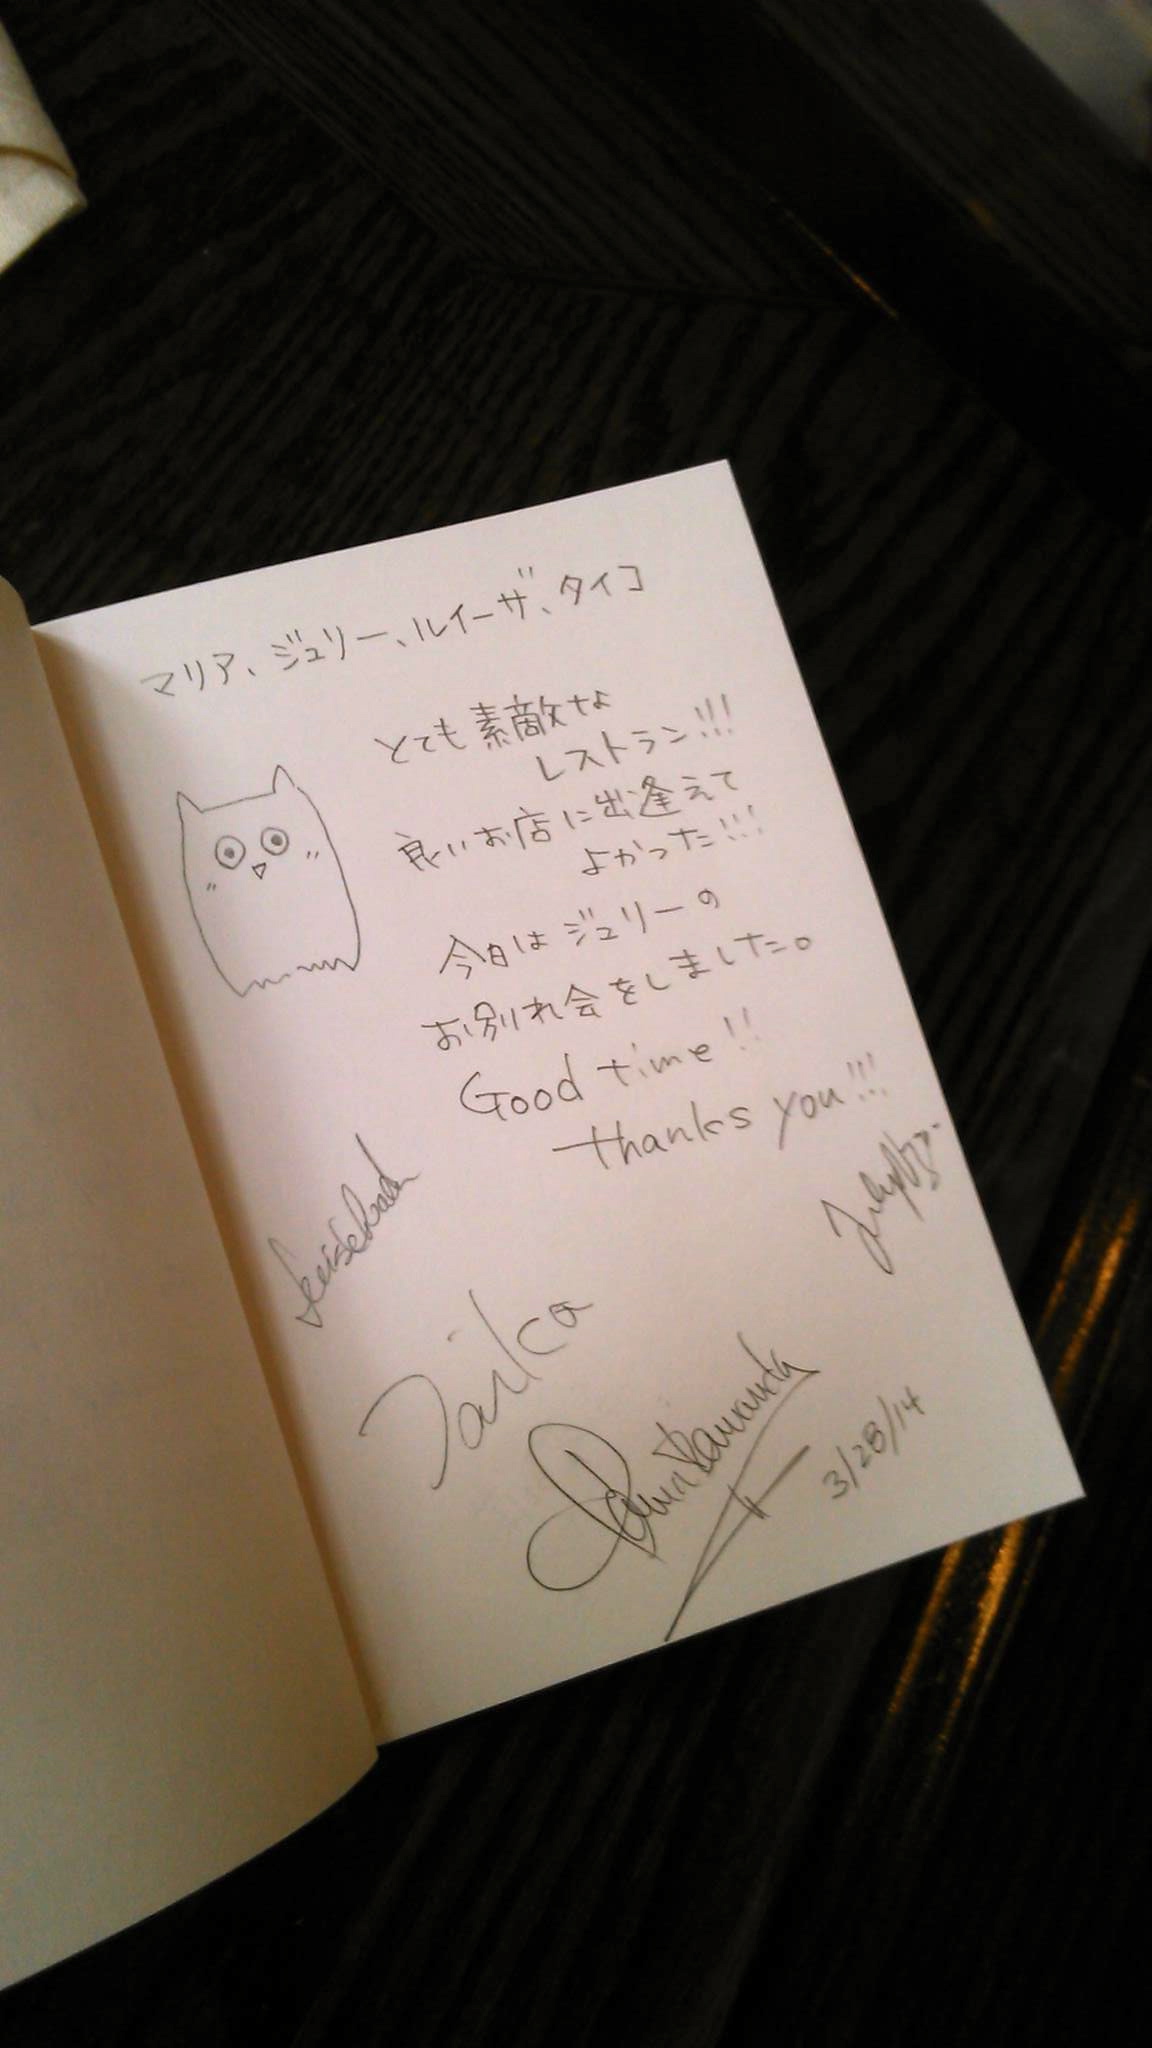 マリア、ジュリー、ルイーザ、タイコ
とても素敵な
レストラン!!!
良いお店に出逢えて
よかった!!!
今日はジュリーの
お別れ会をしました。
Good time!!
thanks you!!!
Taika
3/28/14